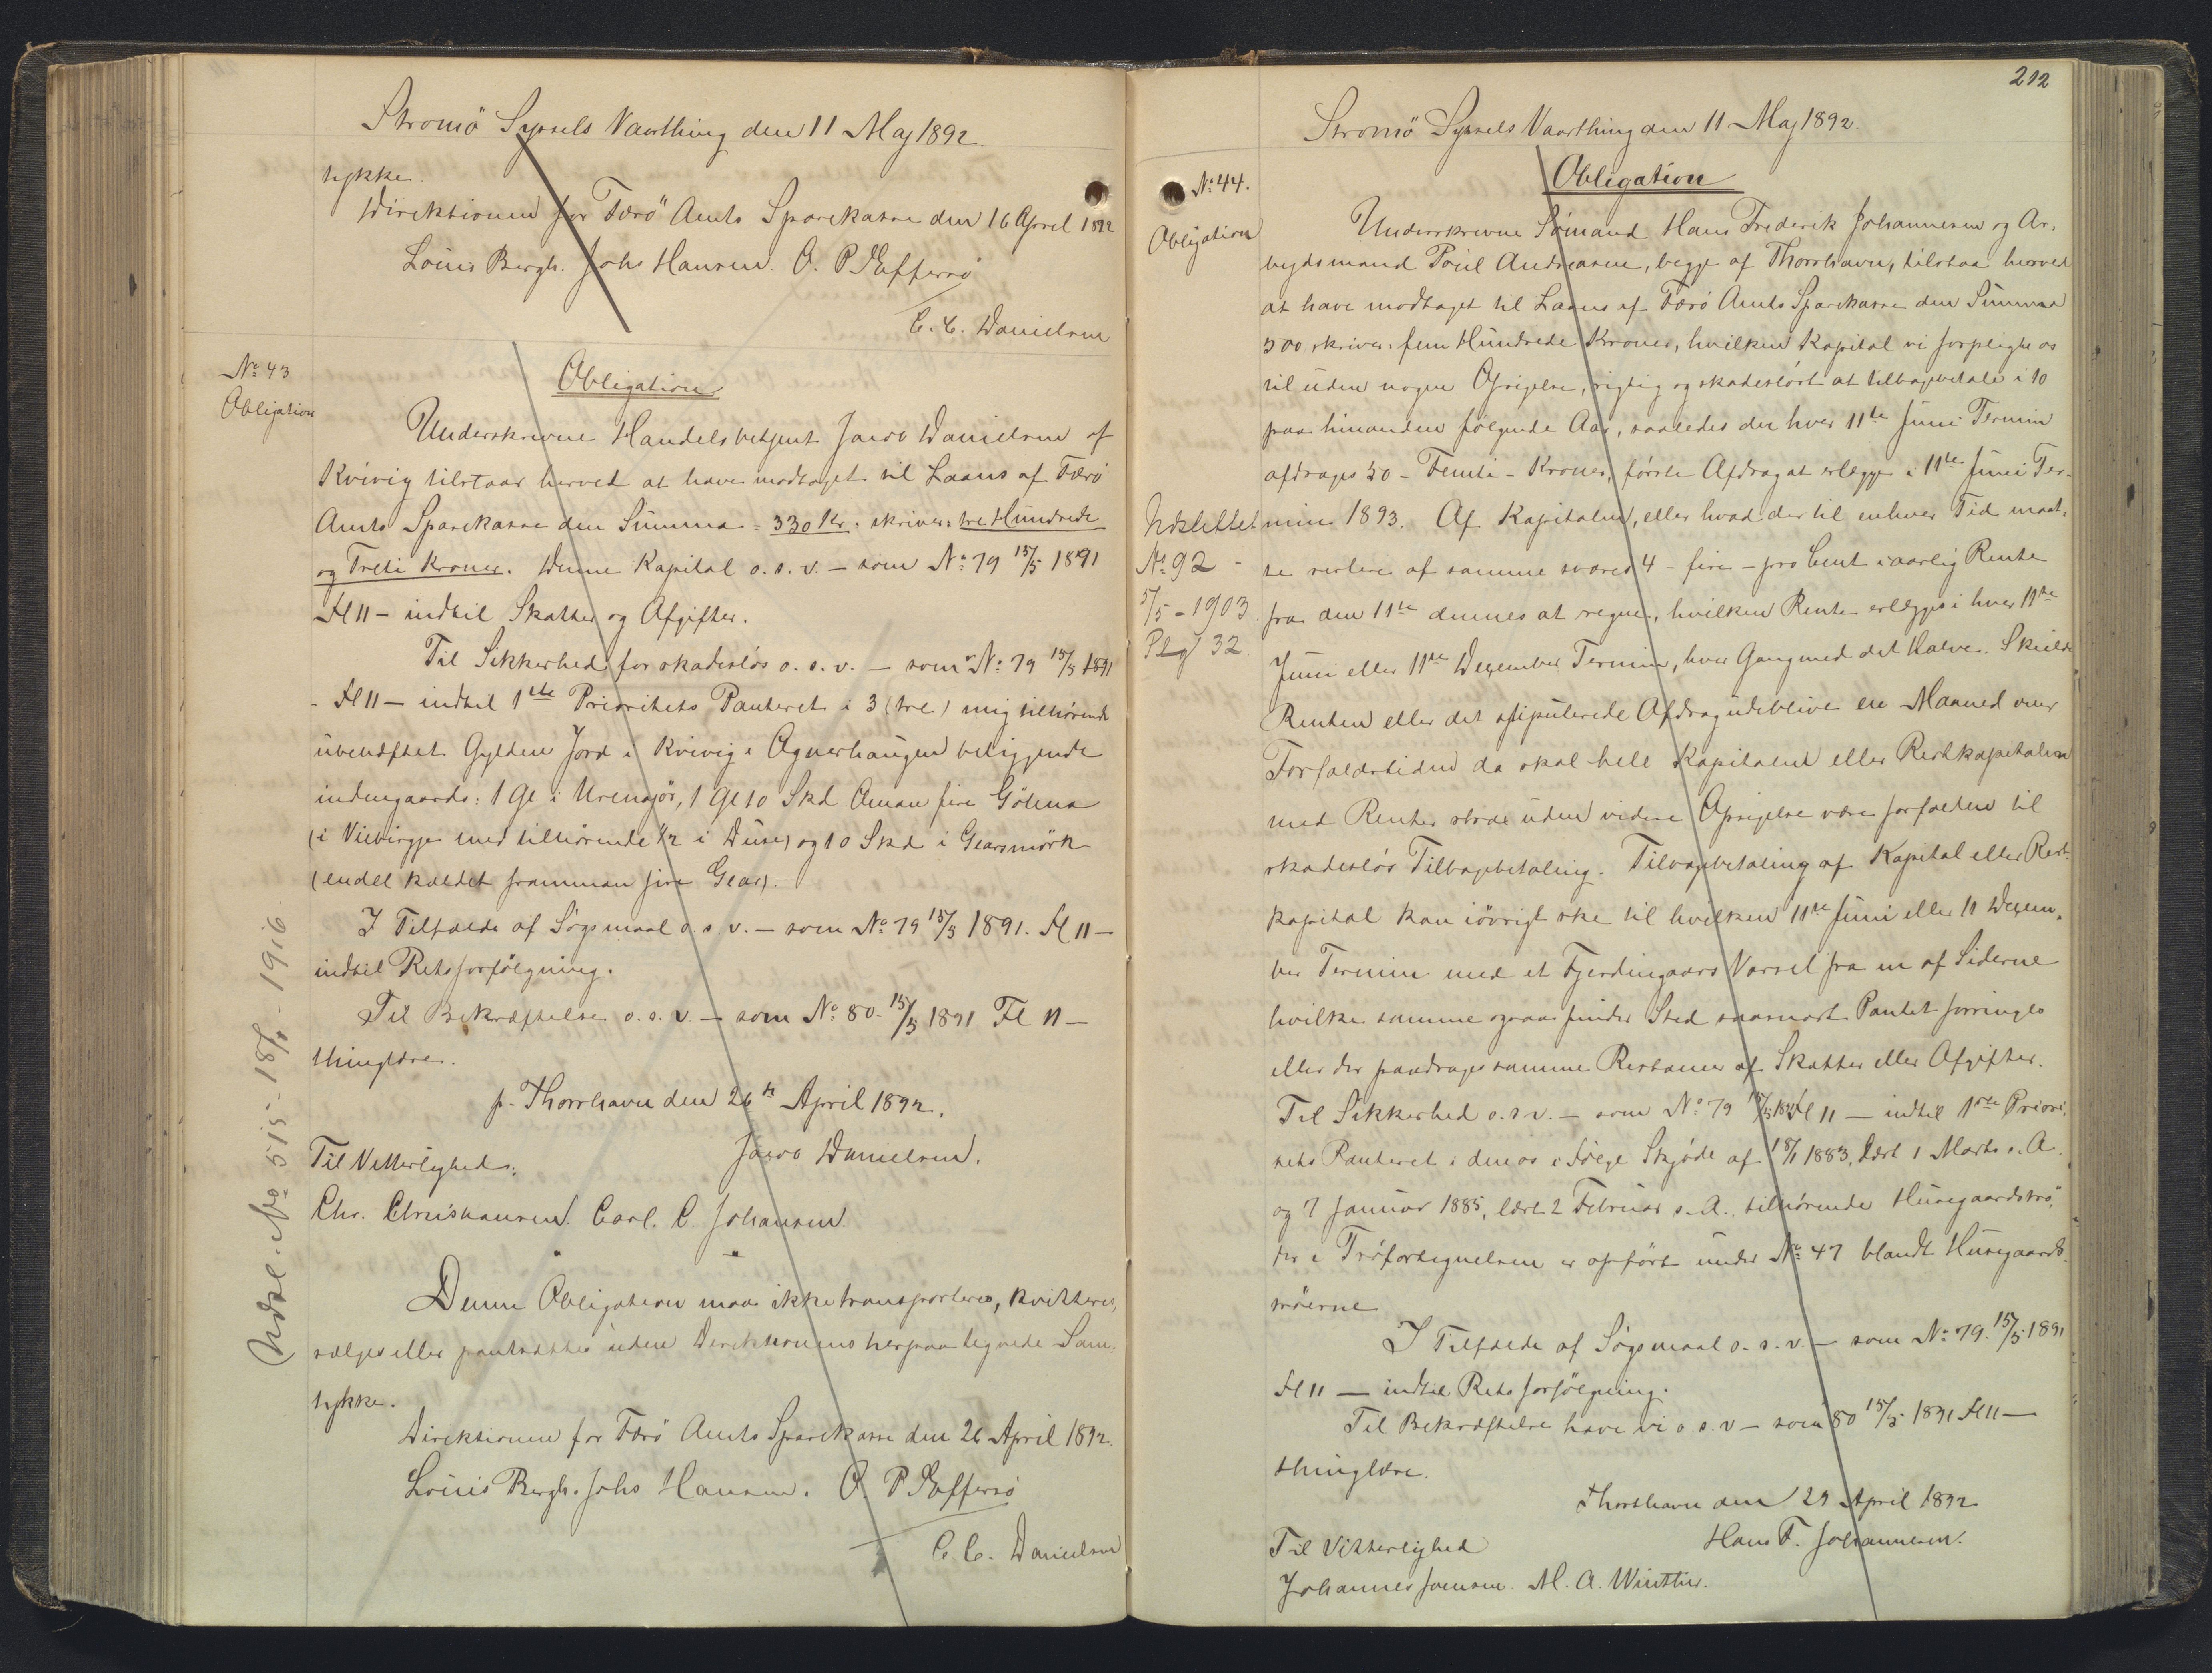 Strömö Syssels Vaarthing den 11 Maj 1892.
tykke.
Direktionen for Færö Amts Sparekasse den 16 April 1892
Louis Bergh. Johs Hansen. O. P. Effersö
C. C. Danielsen
No 43
Obligation
Obligation
Underskrevne Handelsbetjent Jacob Danielsen af
Kvivig tilstaar herved at have modtaget til Laans af Færö
Amts Sparekasse den Summa = 330 Kr. skriver: tre Hundrede
og Treti Kroner. Denne Kapital o. s. v. – som No 79 15/5 1891
Fl 11 – indtil Skatter og Afgifter.
Til Sikkerhed for skadeslös o. s. v. – som No 79 15/5 1891
- Fl 11 – indtil 1ste Prioritets Panteret i 3 (tre) mig tilhörende
ubehæftet Gylden Jord i Kvivig i Ognerhaugen beliggende
indengaards: 1 Gl. i Urenajör, 1 Gl 10 Skd Oman fire Gölma
(i Vubirgje med tilhörende 1/2 i Duse) og 10 Skd i Gearsmörk
(endel kaldet framman fire Gear).
I Tilfælde af Sögsmaal o. s. v. – som No 79 15/5 1891. Fl 11 –
indtil Retsforfölgning.
Til Bekræftelse o. s. v. – som No 80 15/5 1891 Fl 11 –
thinglæse.
p. Thorshavn den 26de April 1892.
Jacob Danielsen.
Til Vitterlighed:
Chr. Christiansen. Carl. C. Johansen.
Denne Obligation maa ikke transporteres, kvitteres,
sælges eller pantsættes uden Direktionens herpaa tegnede Sam-
tykke.
Direktionen for Færö Amts Sparekasse den 26 April 1892.
Louis Bergh. Johs Hansen. O. P. Effersö
C. C. Danielsen
Udsl. No 515 - 18/8 - 1916
212
Strömö Syssels Vaarthing den 11 Maj 1892.
No 44.
Obligation
Obligation
Underskrevne Sömand Hans Frederik Johannesen og Ar-
bejdsmand Poul Andreasen, begge af Thorshavn, tilstaa herved
at have modtaget til Laans af Færö Amts Sparekasse den Summa
500 skriver: fem Hundrede Kroner, hvilken Kapital vi forpligte os
til uden nogen Opsigelse, rigtig og skadeslöst at tilbagebetale i 10
paa hinanden fölgende Aar, saaledes der hver 11te Juni Termin
afdrages 50 – Femti – Kroner, förste Afdrag at erlægge i 11te Juni Ter-
min 1893. Af Kapitalen, eller hvad der til enhver Tid maat-
te restere af samme svares 4 – fire – pro Cent i aarlig Rente
fra den 11te dennes at regne, hvilken Rente erlægges i hver 11te
Juni eller 11te Dezember Termin, hver Gang med det Halve. Skulde
Renten eller det stipulerede Afdrag udeblive en Maaned over
Forfaldstiden da skal hele Kapitalen eller Restkapitalen
med Renter strax uden videre Opsigelse være forfalden til
skadeslös Tilbagebetaling. Tilbagebetaling af Kapital eller Rest-
kapital kan iövrigt ske til hvilken 11te Juni eller 11 Dezem-
ber Termin med et Fjerdingaars Varsel fra en af Siderne
hvilke samme ogsaa finder Sted saasnart Pantet forringes
eller der paadrages samme Restancer af Skatter eller Afgifter.
Til Sikkerhed o. s. v. – som No 79 15/5 1891 Fl 11 – indtil 1ste Priori-
tets Panteret i den os i Fölge Skjöde af 18/1 1883, læst 1 Marts s. A.
og 7 Januar 1885, læst 2 Februar s. A., tilhörende Husegaardströ,
der i Tröfortegnelsen er opfört under No 47 blandt Husegaards
tröerne
I Tilfælde af Sögsmaal o. s. v. – som No 79. 15/5 1891
Fl 11 – indtil Retsforfölgning.
Til Bekræftelse have vi o. s. v – som 80 15/5 1891 Fl 11 –
thinglæse.
Thorshavn den 29 April 1892
Hans F. Johannesen.
Til Vitterlighed
Johannes Joensen. M. A. Winther.
Udslettet
No 92 -
5/5 - 1903
Plgl 32.